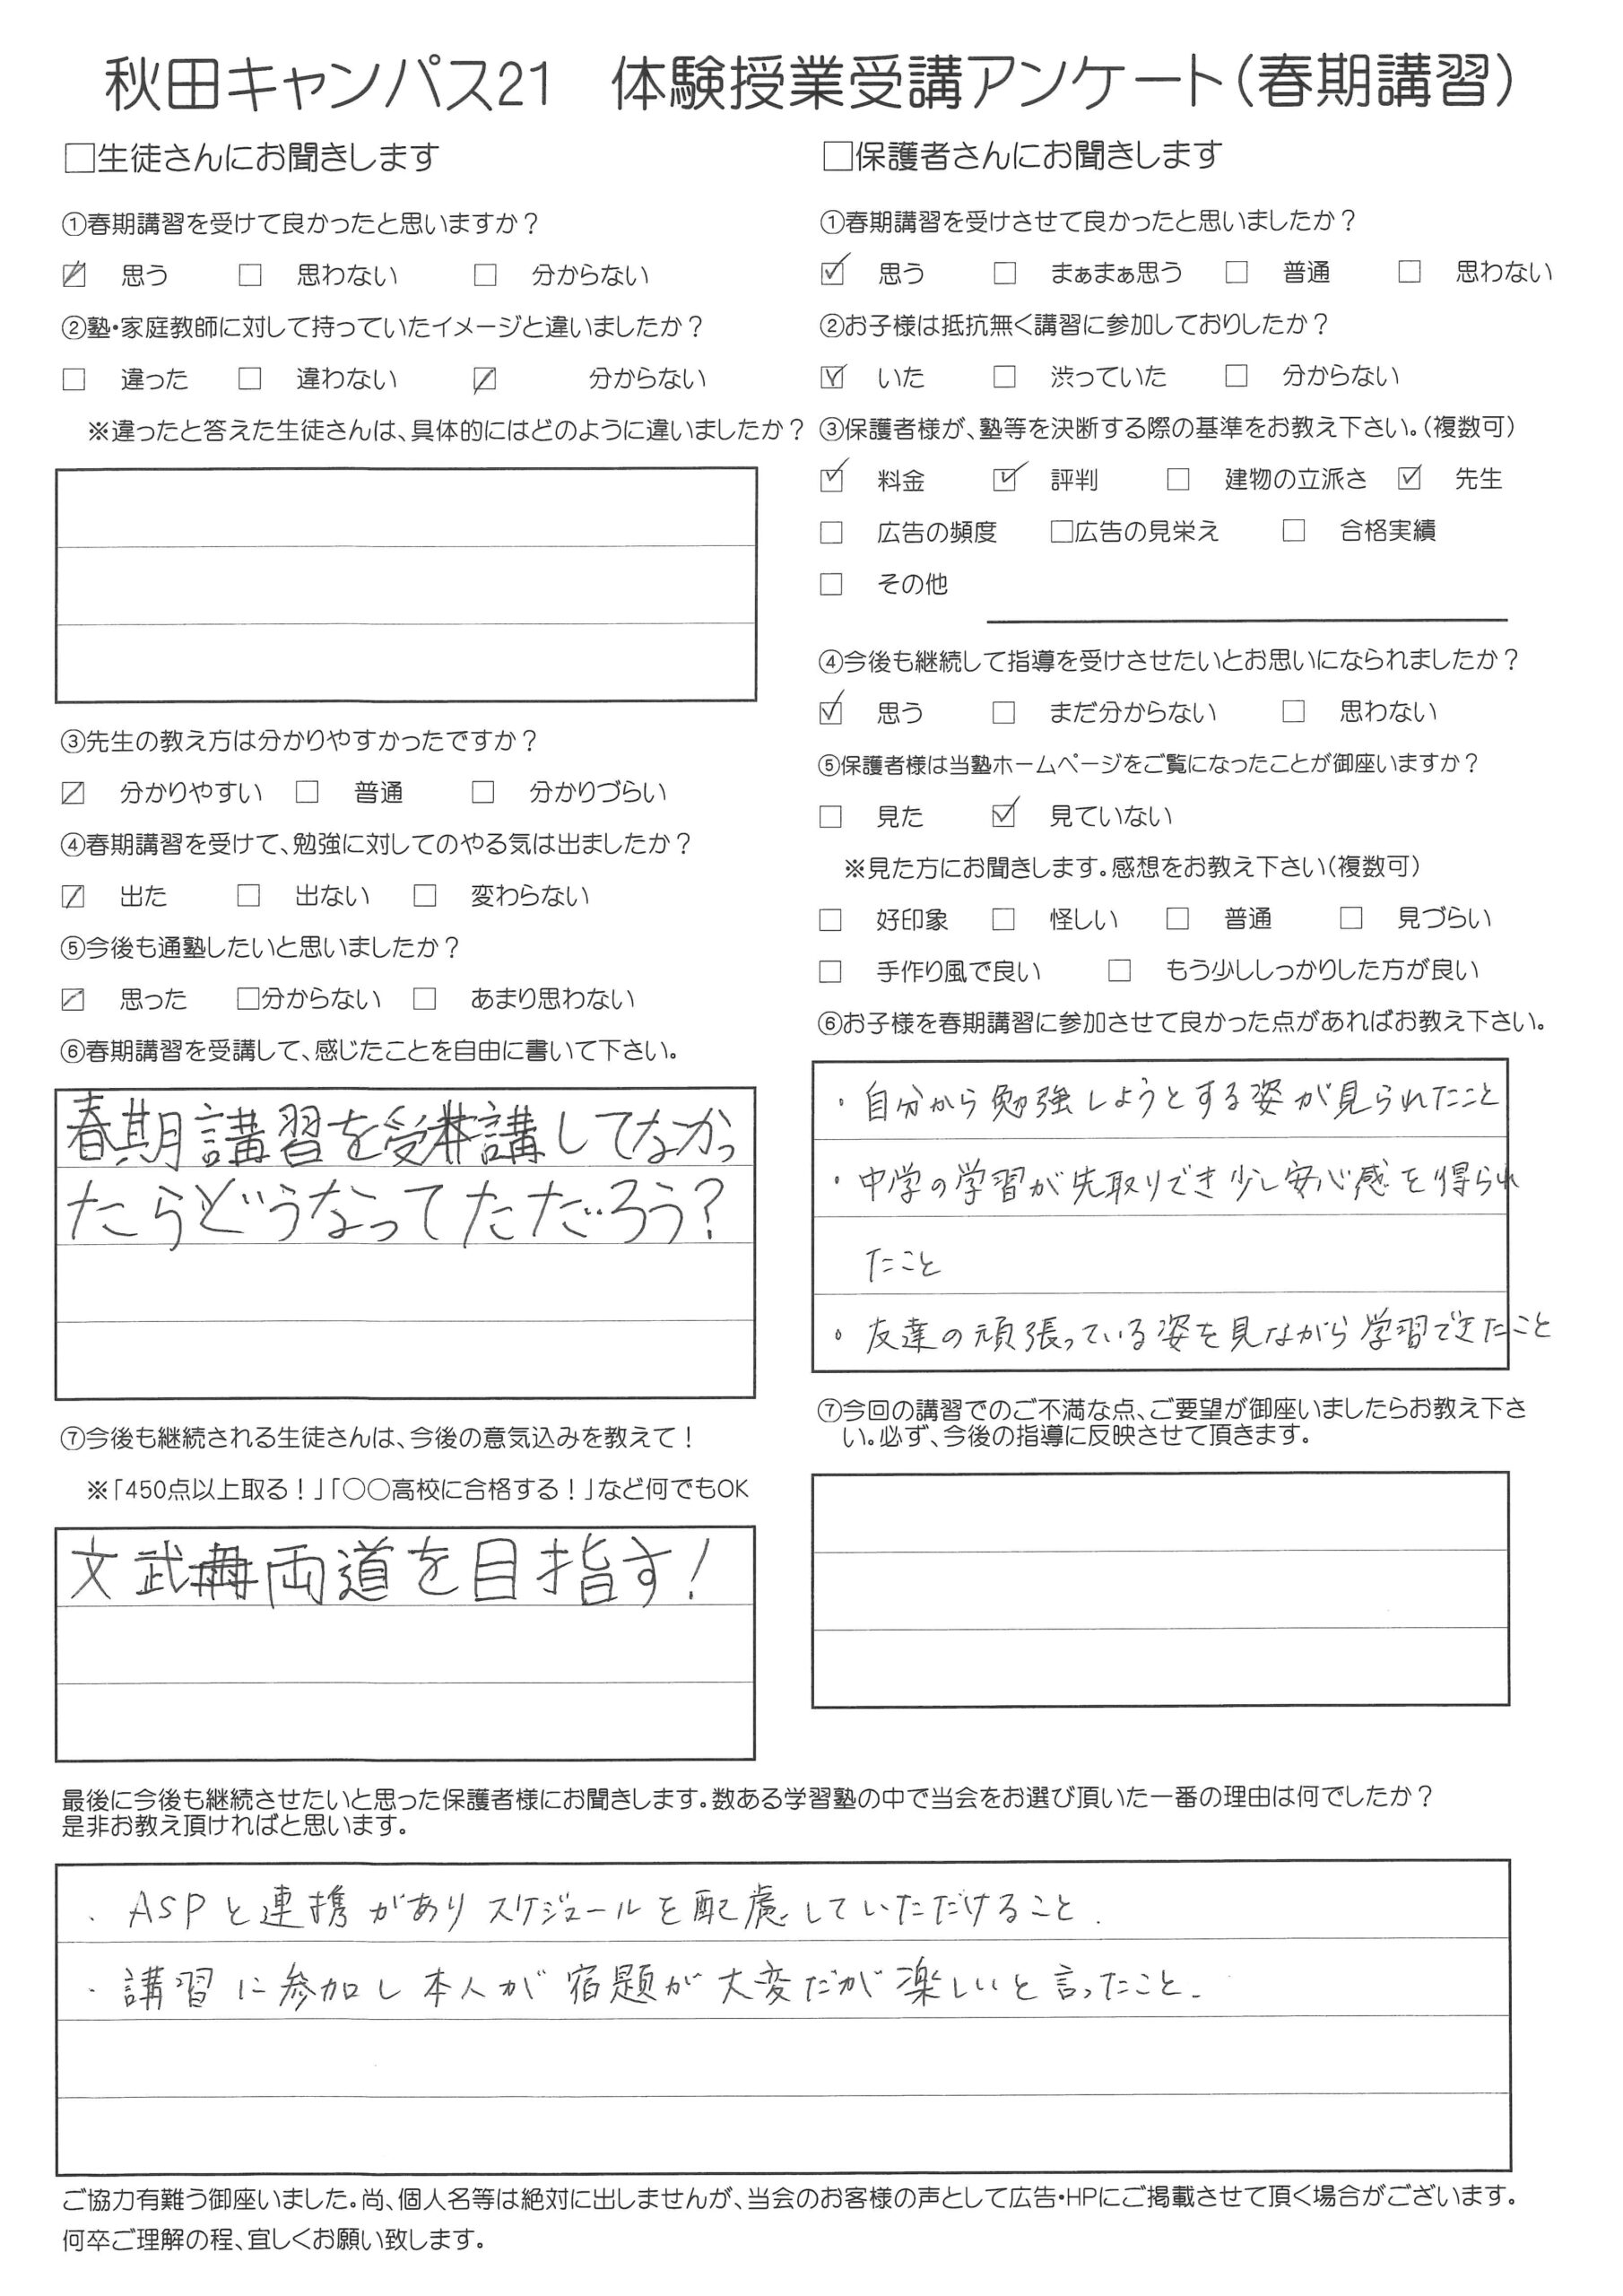 秋田キャンパス21　体験授業受講アンケート(春期講習)
□生徒さんにお聞きします
①春期講習を受けて良かったと思いますか?
☑ 思う □ 思わない □ 分からない
②塾・家庭教師に対して持っていたイメージと違いましたか?
□ 違った □ 違わない ☑ 分からない
※違ったと答えた生徒さんは、具体的にはどのように違いましたか?
③先生の教え方は分かりやすかったですか?
☑ 分かりやすい □ 普通 □ 分かりづらい
④春期講習を受けて、勉強に対してのやる気は出ましたか?
☑ 出た □ 出ない □ 変わらない
⑤今後も通塾したいと思いましたか?
☑ 思った □分からない □ あまり思わない
⑥春期講習を受講して、感じたことを自由に書いて下さい。
春期講習を受講してなかっ
たらどうなってただろう?
⑦今後も継続される生徒さんは、今後の意気込みを教えて!
※「450点以上取る!」「○○高校に合格する!」など何でもOK
文武両道を目指す!
□保護者さんにお聞きします
①春期講習を受けさせて良かったと思いましたか?
☑ 思う □ まぁまぁ思う □ 普通 □ 思わない
②お子様は抵抗無く講習に参加しておりしたか?
☑ いた □ 渋っていた □ 分からない
③保護者様が、塾等を決断する際の基準をお教え下さい。(複数可)
☑ 料金 ☑ 評判 □ 建物の立派さ ☑ 先生
□ 広告の頻度 □広告の見栄え □ 合格実績
□ その他
④今後も継続して指導を受けさせたいとお思いになられましたか?
☑ 思う □ まだ分からない □ 思わない
⑤保護者様は当塾ホームページをご覧になったことが御座いますか?
□ 見た ☑ 見ていない
※見た方にお聞きします。感想をお教え下さい(複数可)
□ 好印象 □ 怪しい □ 普通 □ 見づらい
□ 手作り風で良い □ もう少ししっかりした方が良い
⑥お子様を春期講習に参加させて良かった点があればお教え下さい。
・自分から勉強しようとする姿が見られたこと
・中学の学習が先取りでき少し安心感を得られ
たこと
・友達の頑張っている姿を見ながら学習できたこと
⑦今回の講習でのご不満な点、ご要望が御座いましたらお教え下さ
い。必ず、今後の指導に反映させて頂きます。
最後に今後も継続させたいと思った保護者様にお聞きします。数ある学習塾の中で当会をお選び頂いた一番の理由は何でしたか?
是非お教え頂ければと思います。
・ASPと連携がありスケジュールを配慮していただけること.
・講習に参加し本人が宿題が大変だが楽しいと言ったこと.
ご協力有難う御座いました。尚、個人名等は絶対に出しませんが、当会のお客様の声として広告・HPにご掲載させて頂く場合がございます。
何卒ご理解の程、宜しくお願い致します。